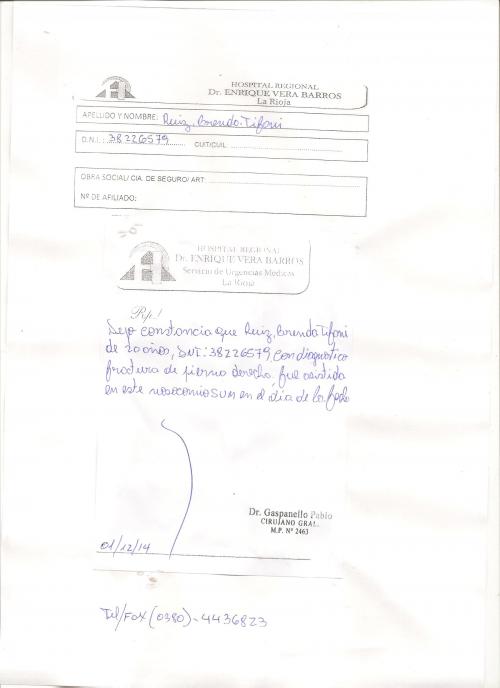 HOSPITAL REGIONAL
Dr. ENRIQUE VERA BARROS
La Rioja
APELLIDO Y NOMBRE: Ruiz, Brenda Tifani
D.N.I.: 38226579 CUIT/CUIL:
OBRA SOCIAL/ CIA. DE SEGURO/ ART:
Nº DE AFILIADO:
HOSPITAL REGIONAL
Dr. ENRIQUE VERA BARROS
Servicio de Urgencias Médicas
La Rioja
Rp.!
Dejo constancia que Ruiz, Brenda Tifani
de 20 años, DNI: 38226579, con diagnostico
fractura de pierna derecha, fue asistida
en este nosocomio SUM en el dia de la fecha
Dr. Gaspanello Pablo
CIRUJANO GRAL.
M.P. Nº 2463
01/12/14
Tel/FAX (0380)-4436823